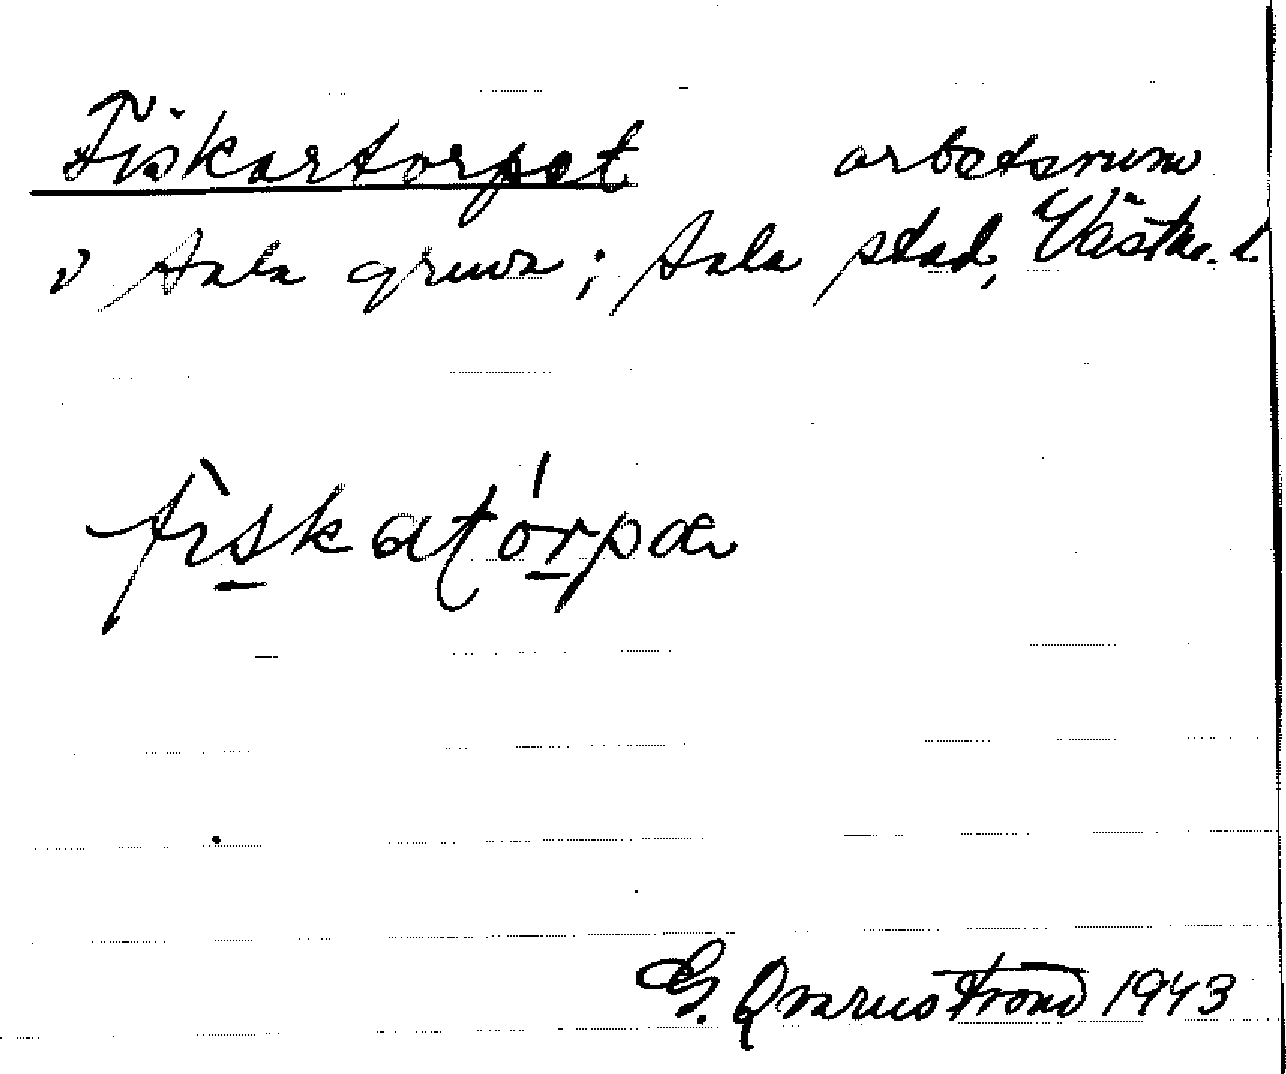 Fiskartorpet arbetsrum
i Sala gruva; Sala stad, Västm. l.
fìskatórpæ
G. Qvarnström 1943